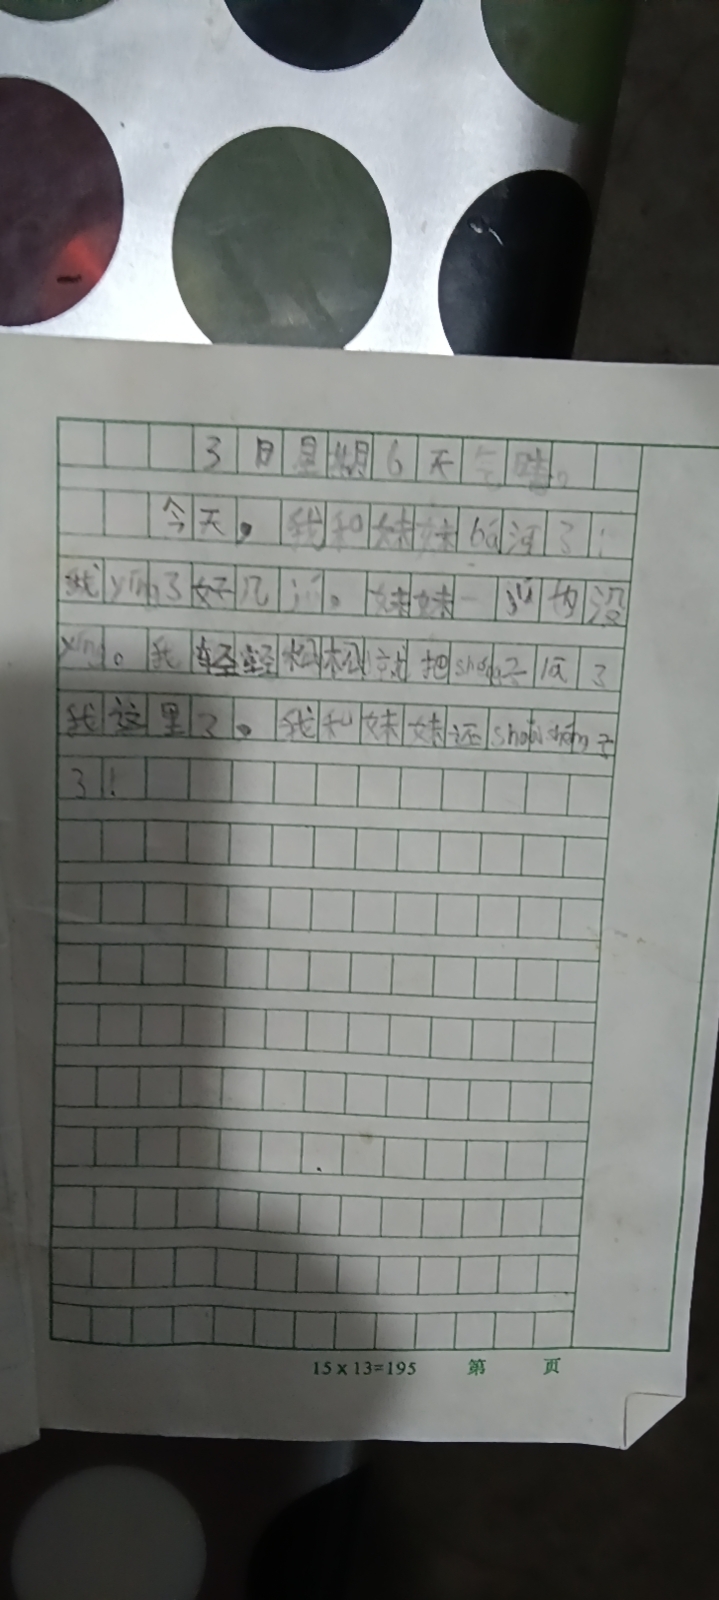 3日星期6天气晴。
今天,我和妹妹bá河了!
我yíng了好几次。妹妹一次也没
yíng。我轻轻松松就把shéng子lā了
我这里了。我和妹妹还shuǎi shéng子
了!
15×13=195 第 页